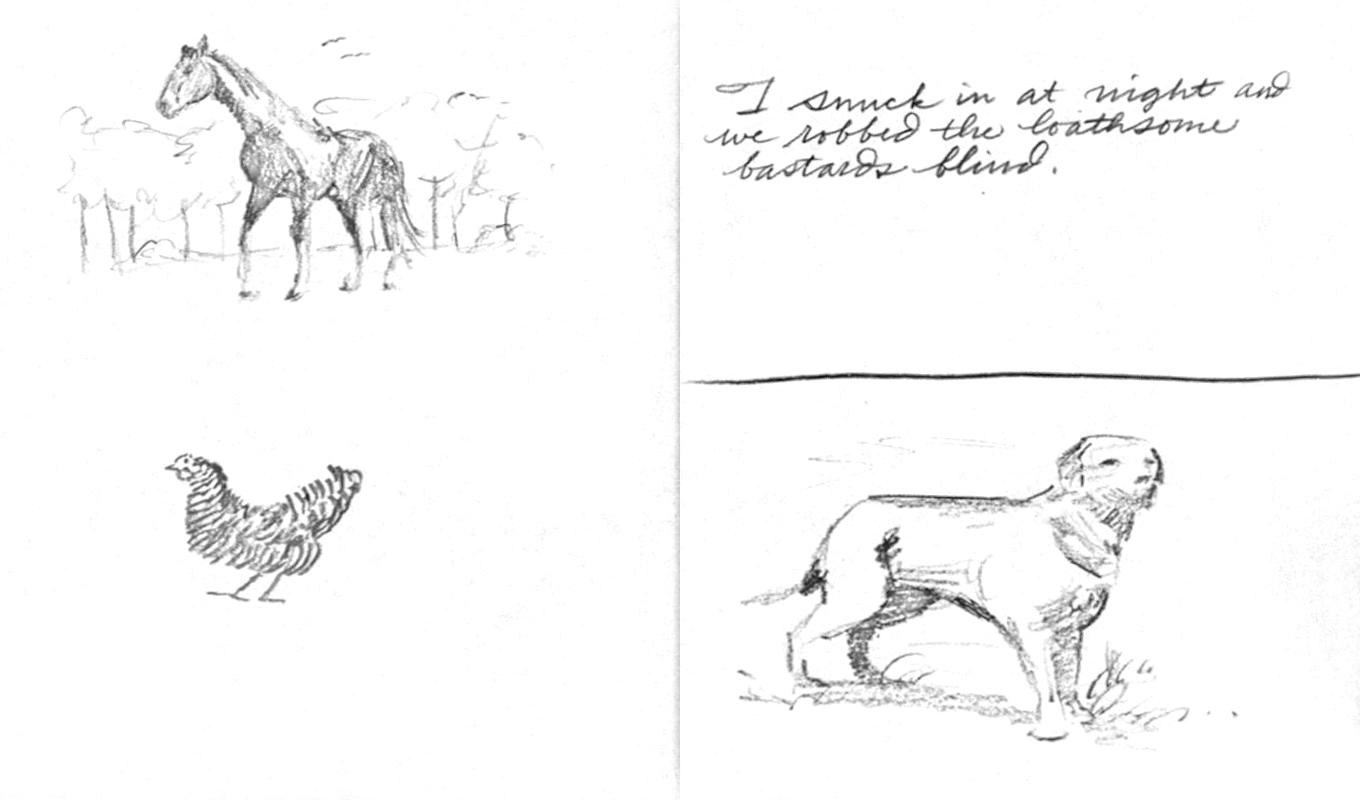 I snuck in at night and
we robbed the loathsome
bastards blind.